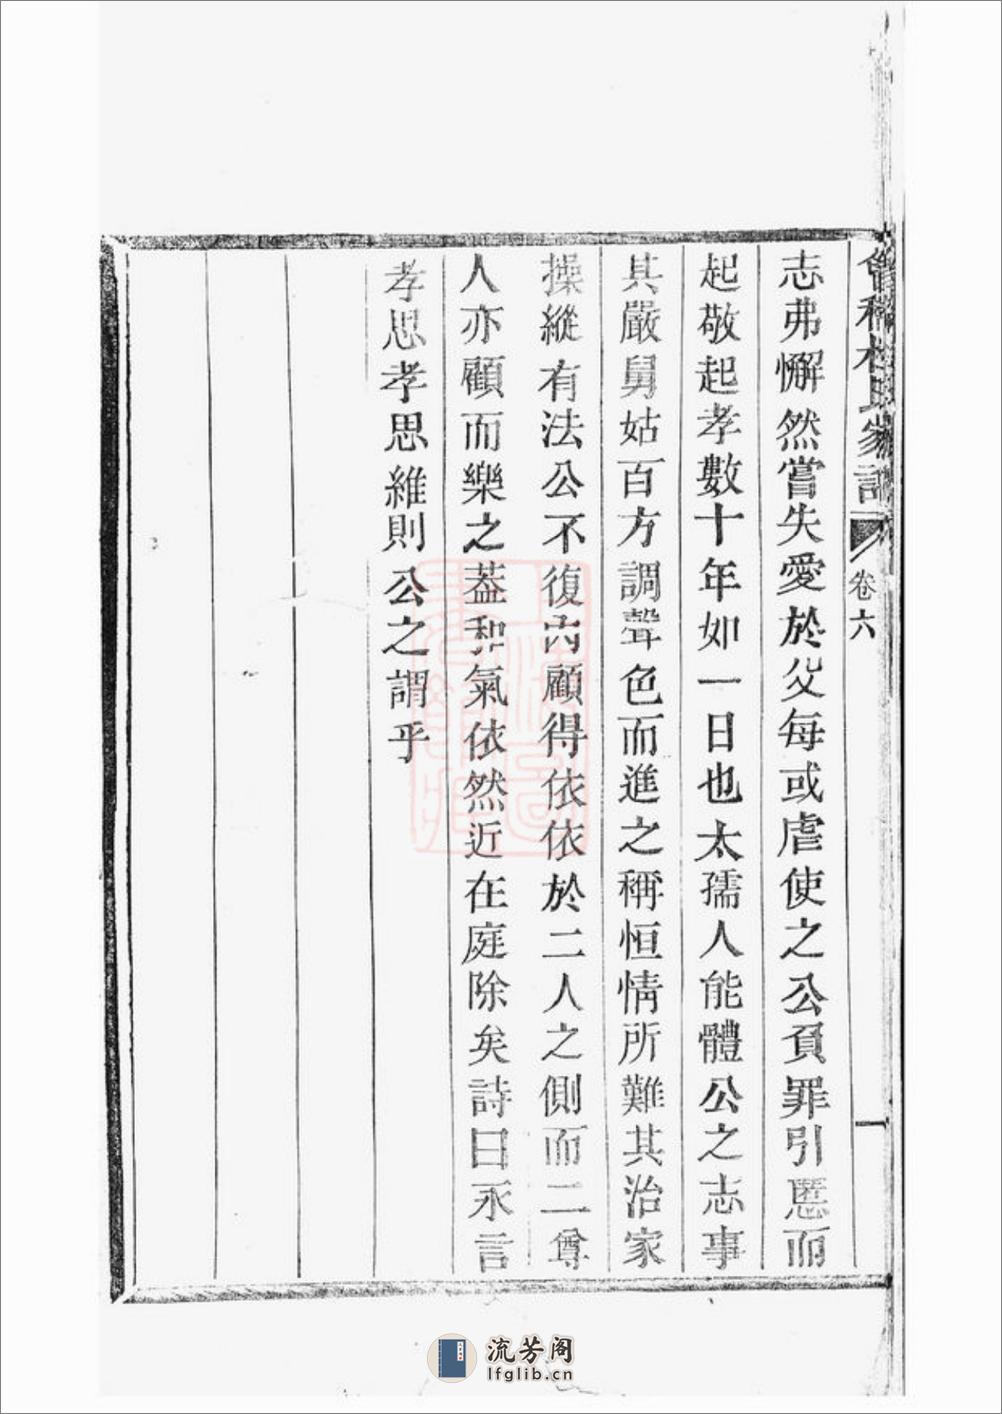 會稽杜氏家譜 卷六 一
志弗懈然嘗失愛於父每或虐使之公負罪引慝而
起敬起孝數十年如一日也太孺人能體公之志事
其嚴舅姑百方調聲色而進之稱恒情所難其治家
操縱有法公不復內顧得依依於二人之側而二尊
人亦顧而樂之葢和氣依然近在庭除矣詩曰永言
孝思孝思維則公之謂乎
流芳阁
lfglib.cn